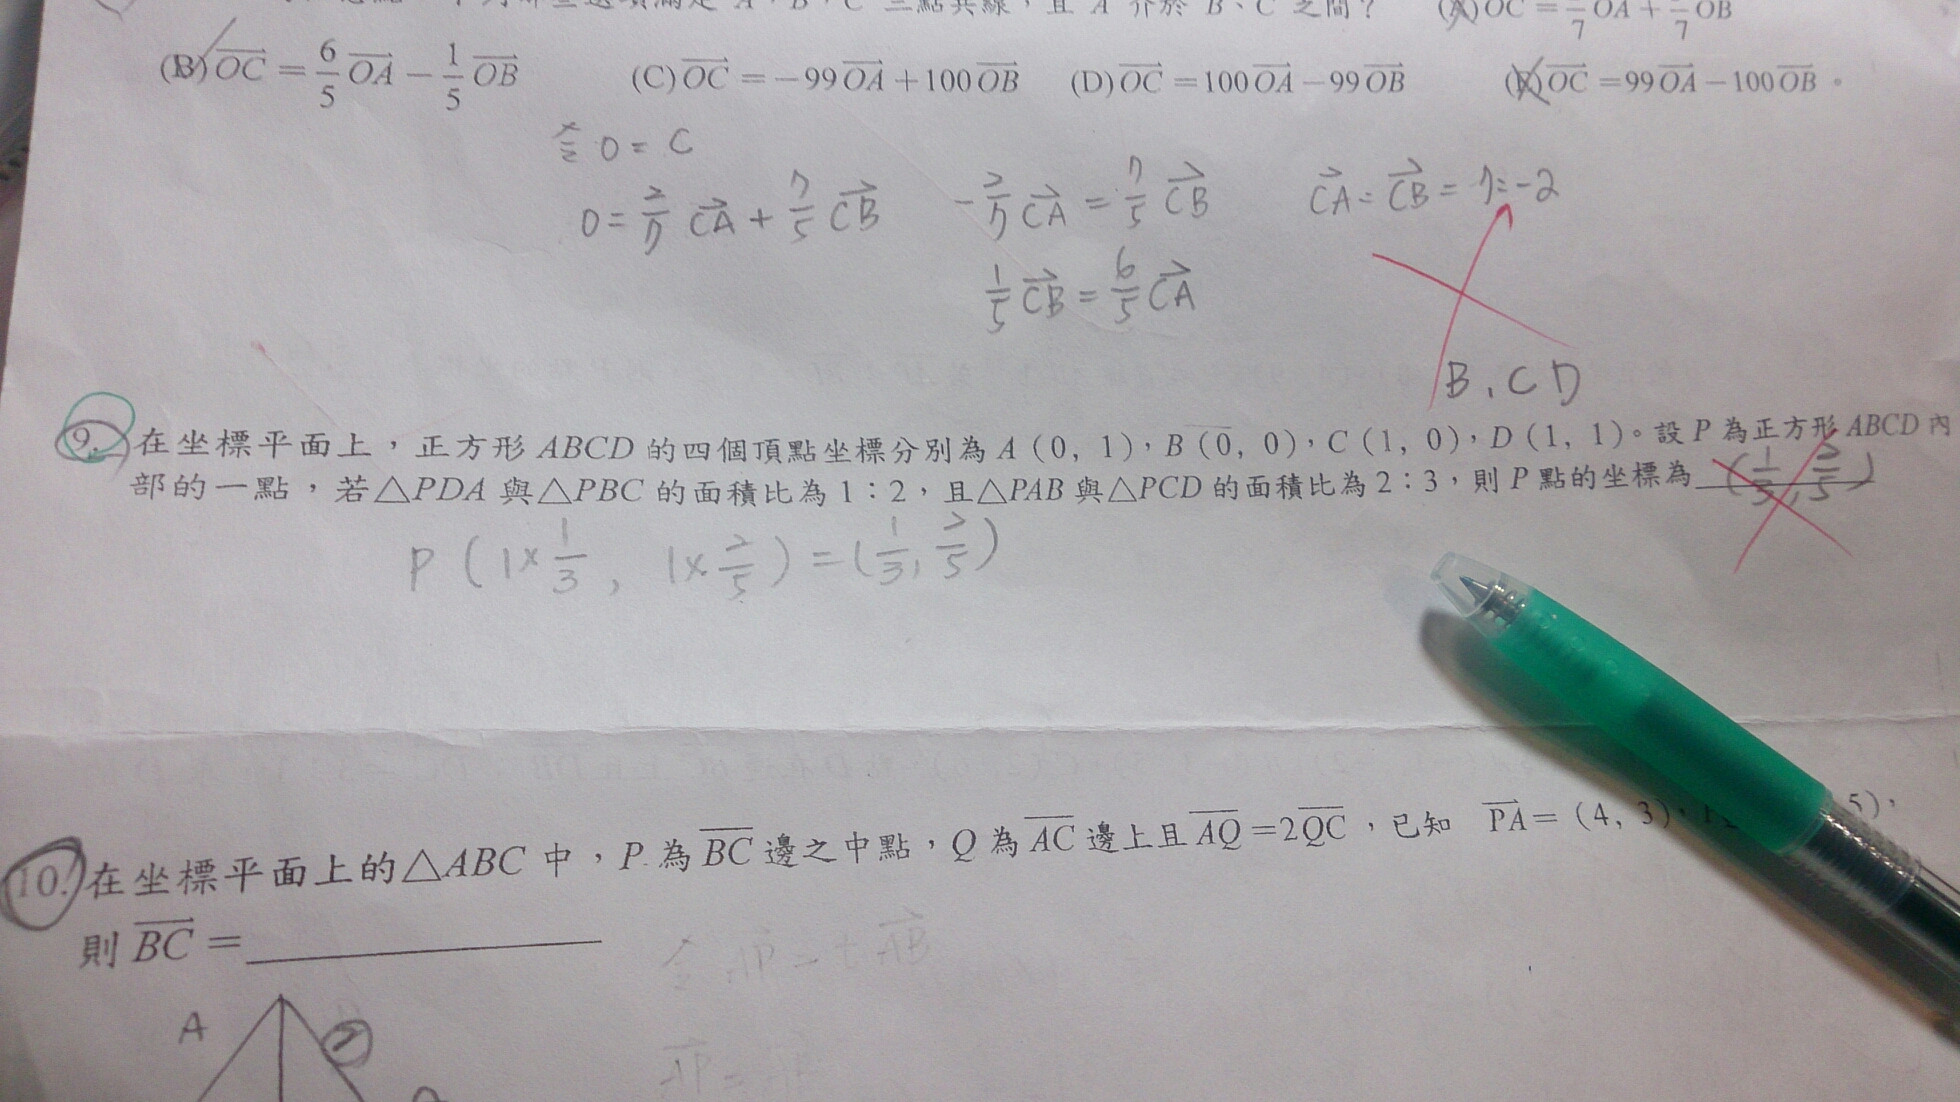 三點共線，且 A 介於 B、C 之間？ (A) OC = _/7 OA + _/7 OB
(B) OC = 6/5 OA − 1/5 OB (C) OC = −99 OA + 100 OB (D) OC = 100 OA − 99 OB (E) OC = 99 OA − 100 OB。
令 O = C
0 = 2/7 CA + 7/5 CB −2/7 CA = 7/5 CB CA = CB = 7:-2
1/5 CB = 6/5 CA
B、CD
9. 在坐標平面上，正方形 ABCD 的四個頂點坐標分別為 A (0, 1)，B (0, 0)，C (1, 0)，D (1, 1)。設 P 為正方形 ABCD 內
部的一點，若△PDA 與△PBC 的面積比為 1：2，且△PAB 與△PCD 的面積比為 2：3，則 P 點的坐標為 (1/3, 2/5)
P (1×1/3, 1×2/5) = (1/3, 2/5)
10. 在坐標平面上的△ABC 中，P 為 BC 邊之中點，Q 為 AC 邊上且 AQ = 2QC，已知 PA = (4, 3)， 5)，
則 BC =
令 AP = t AB
AP =
A 2